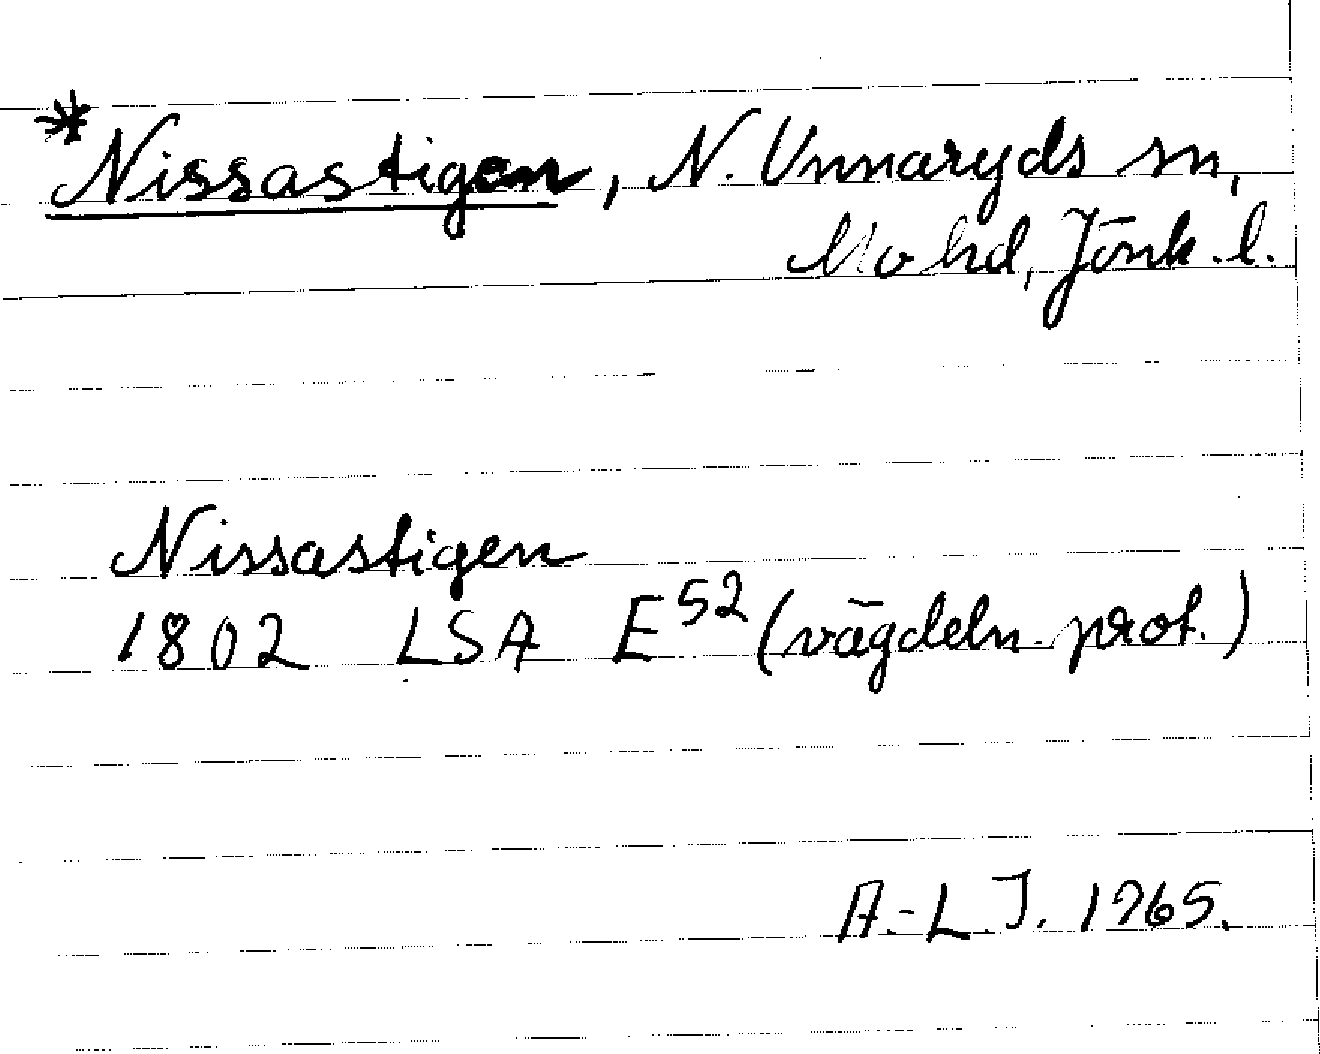 *Nissastigen, N. Unnaryds sn,
Mo hd, Jönk. l.
Nissastigen
1802 LSA E52 (vägdeln. prot.)
A.-L. J. 1965.